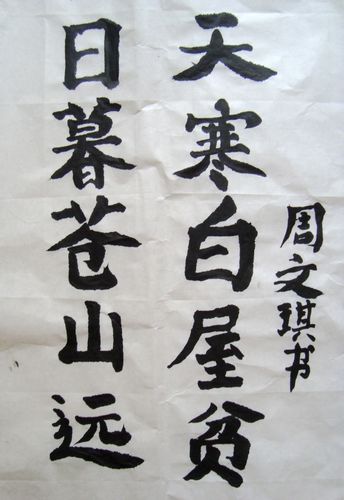 日暮苍山远
天寒白屋贫
周文琪书